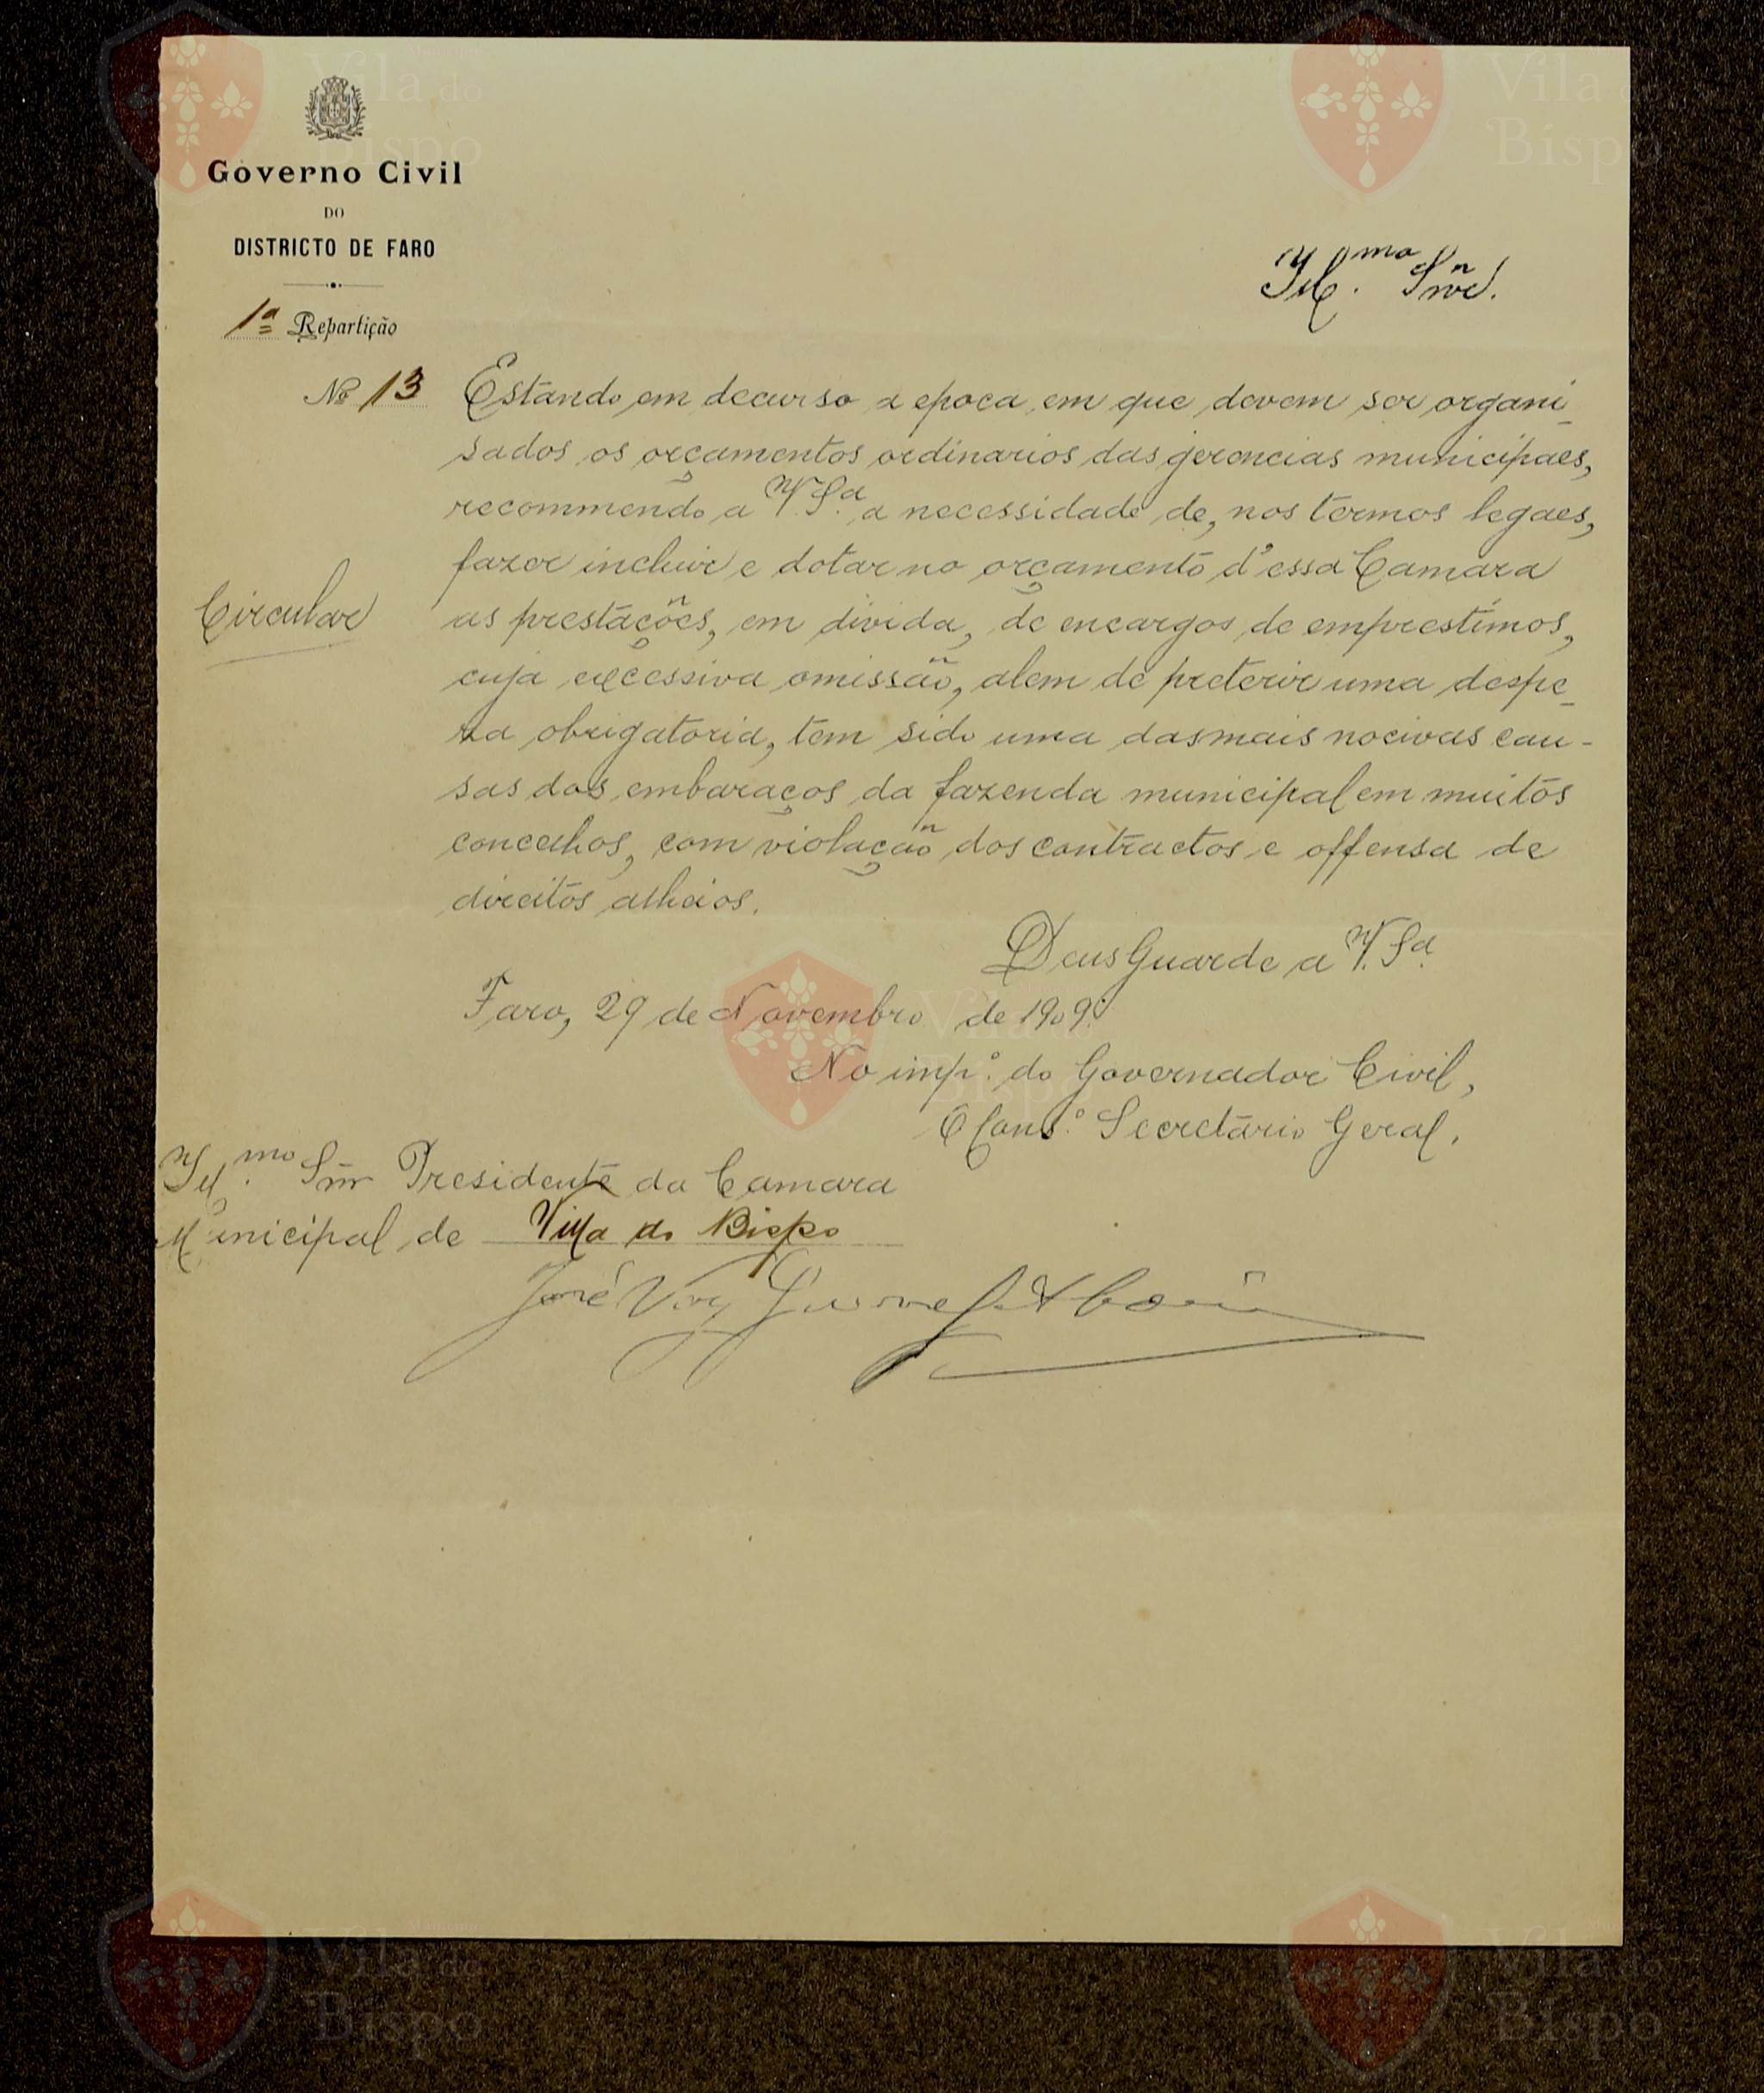 Governo Civil
DO
DISTRICTO DE FARO
1ª Repartição
Ill.mo Snr.
Nº 13
Estando em decurso a epoca em que devem ser organi-
sados os orçamentos ordinarios das gerencias municipaes,
recommendo a V. S.ª a necessidade de, nos termos legaes,
fazer incluir e dotar no orçamento d'essa Camara
Circular
as prestações, em divida, de encargos de emprestimos,
cuja excessiva omissão, alem de preterir uma despe-
za obrigatoria, tem sido uma das mais nocivas cau-
sas dos embaraços da fazenda municipal em muitos
concelhos, com violação dos contractos e offensa de
direitos alheios.
Deus Guarde a V. S.ª
Faro, 29 de Novembro de 1909.
No imp.º do Governador Civil,
O Cons.º Secretário Geral,
Ill.mo Snr. Presidente da Camara
Municipal de Villa do Bispo
José Vaz
Vila do
Bispo
Vila do
Bispo
Vila do
Bispo
Vila do
Bispo
Vila do
Bispo